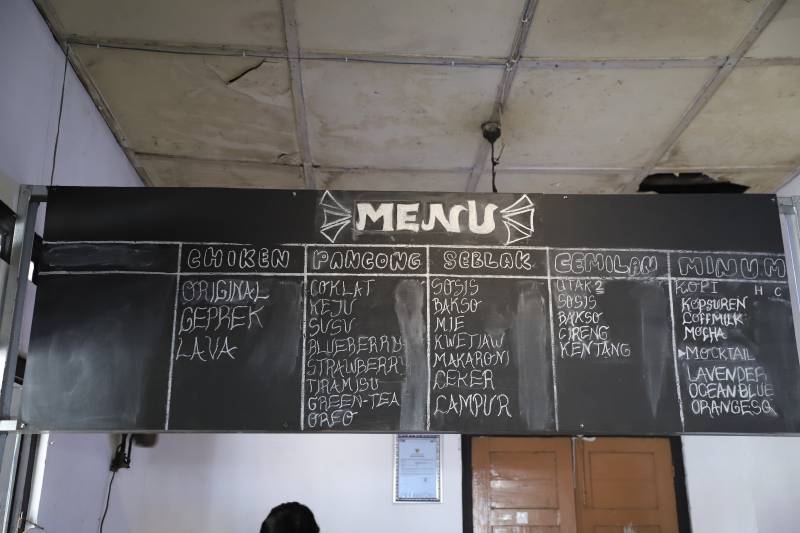 MENU
CHIKEN
ORIGINAL
GEPREK
LAVA
PANCONG
COKLAT
KEJU
SUSU
BLUEBERRY
STRAWBERRY
TIRAMISU
GREEN-TEA
OREO
SEBLAK
SOSIS
BAKSO
MIE
KWETIAW
MAKARONI
CEKER
CAMPUR
CEMILAN
OTAK2
SOSIS
BAKSO
CIRENG
KENTANG
MINUM
KOPI H C
KOPSUREN
COFFMILK
MOCHA
MOCKTAIL
LAVENDER
OCEANBLUE
ORANGESQ